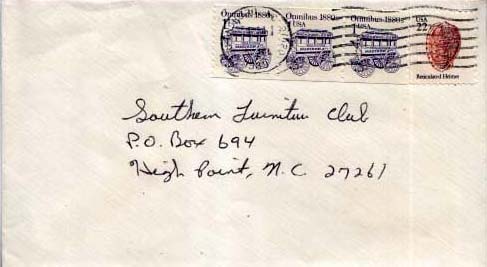 Omnibus 1880s Omnibus 1880s Omnibus 1880s USA
USA USA 1 22
Reticulated Helmet
Southern Furniture Club
P.O. Box 694
High Point, N.C. 27261